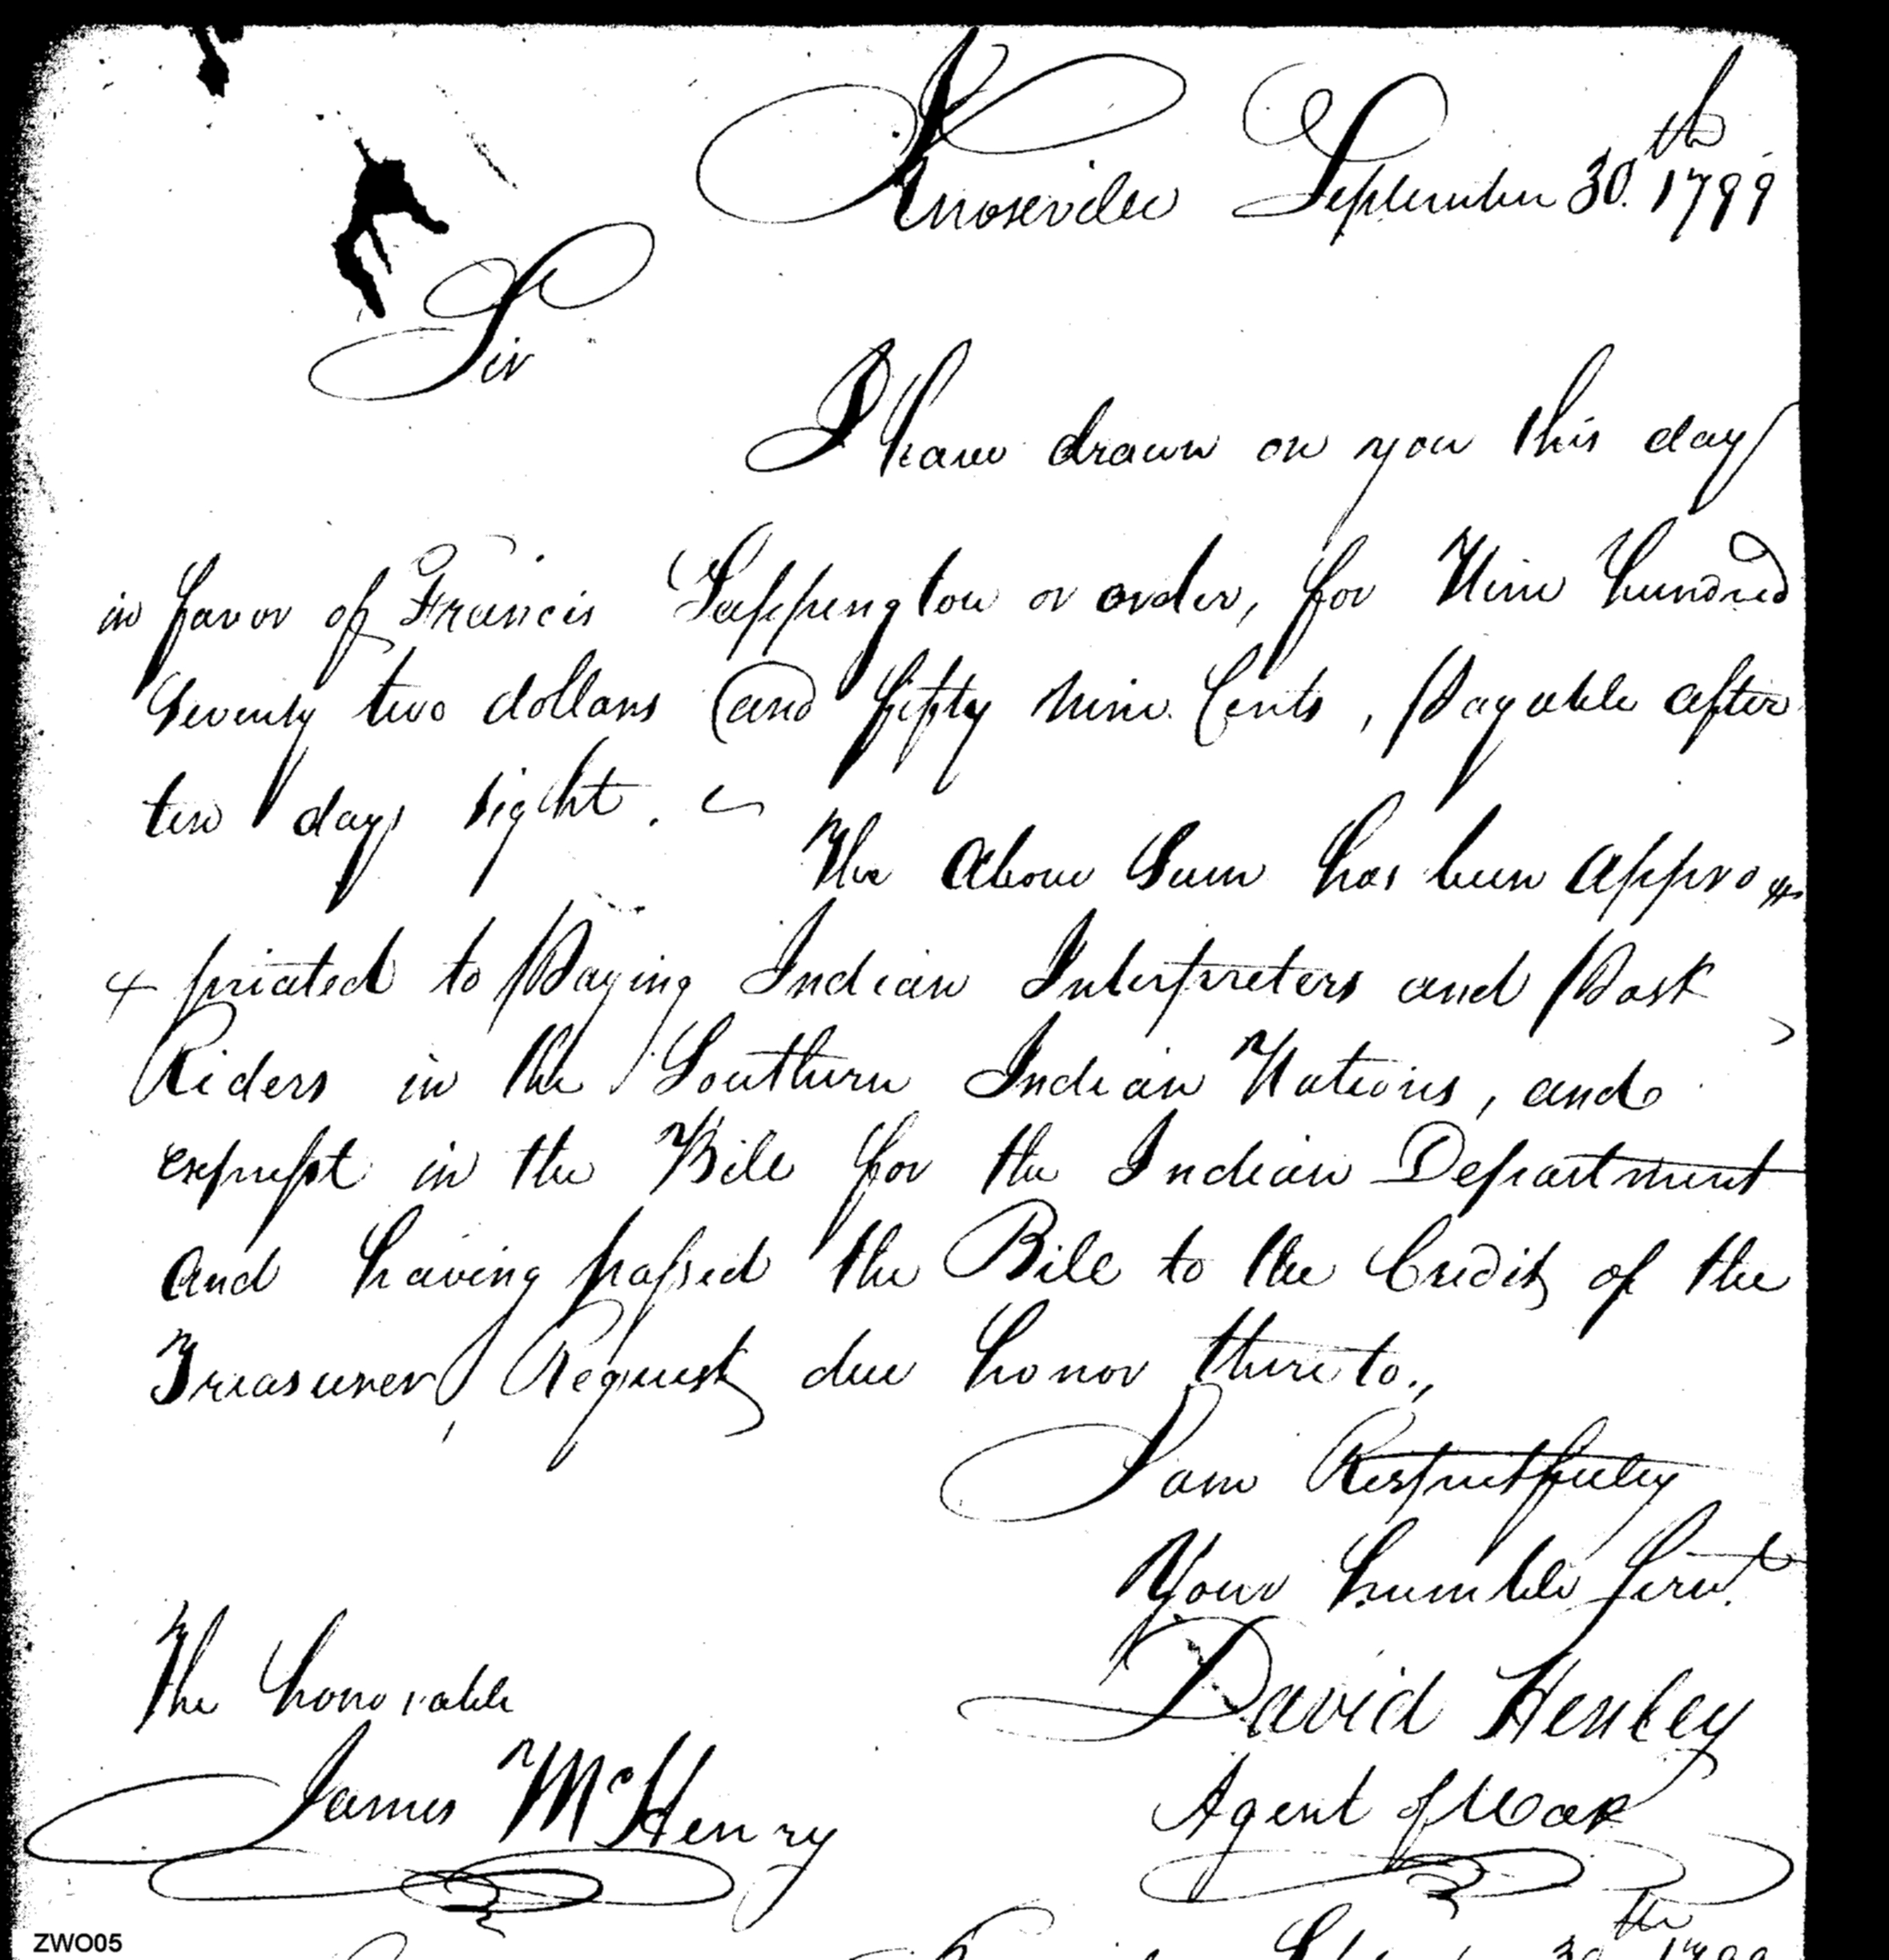 Knoxville September 30.th 1799
Sir
I have drawn on you this day
in favor of Francis Sappington or order, for Nine hundred
Seventy two dollars and fifty nine Cents, Payable after
ten days sight.
The Above Sum has been appro
priated to Paying Indian Interpreters and Post
Riders in the Southern Indian Nations, and
exprest in the Bill for the Indian Department
And having passed the Bill to the Credit of the
Treasurer, Request due honor thereto.,
I am Respectfully
Your humble Servt.
The honorable
David Henley
James McHenry
Agent of War
September 30th 1799
ZWO05